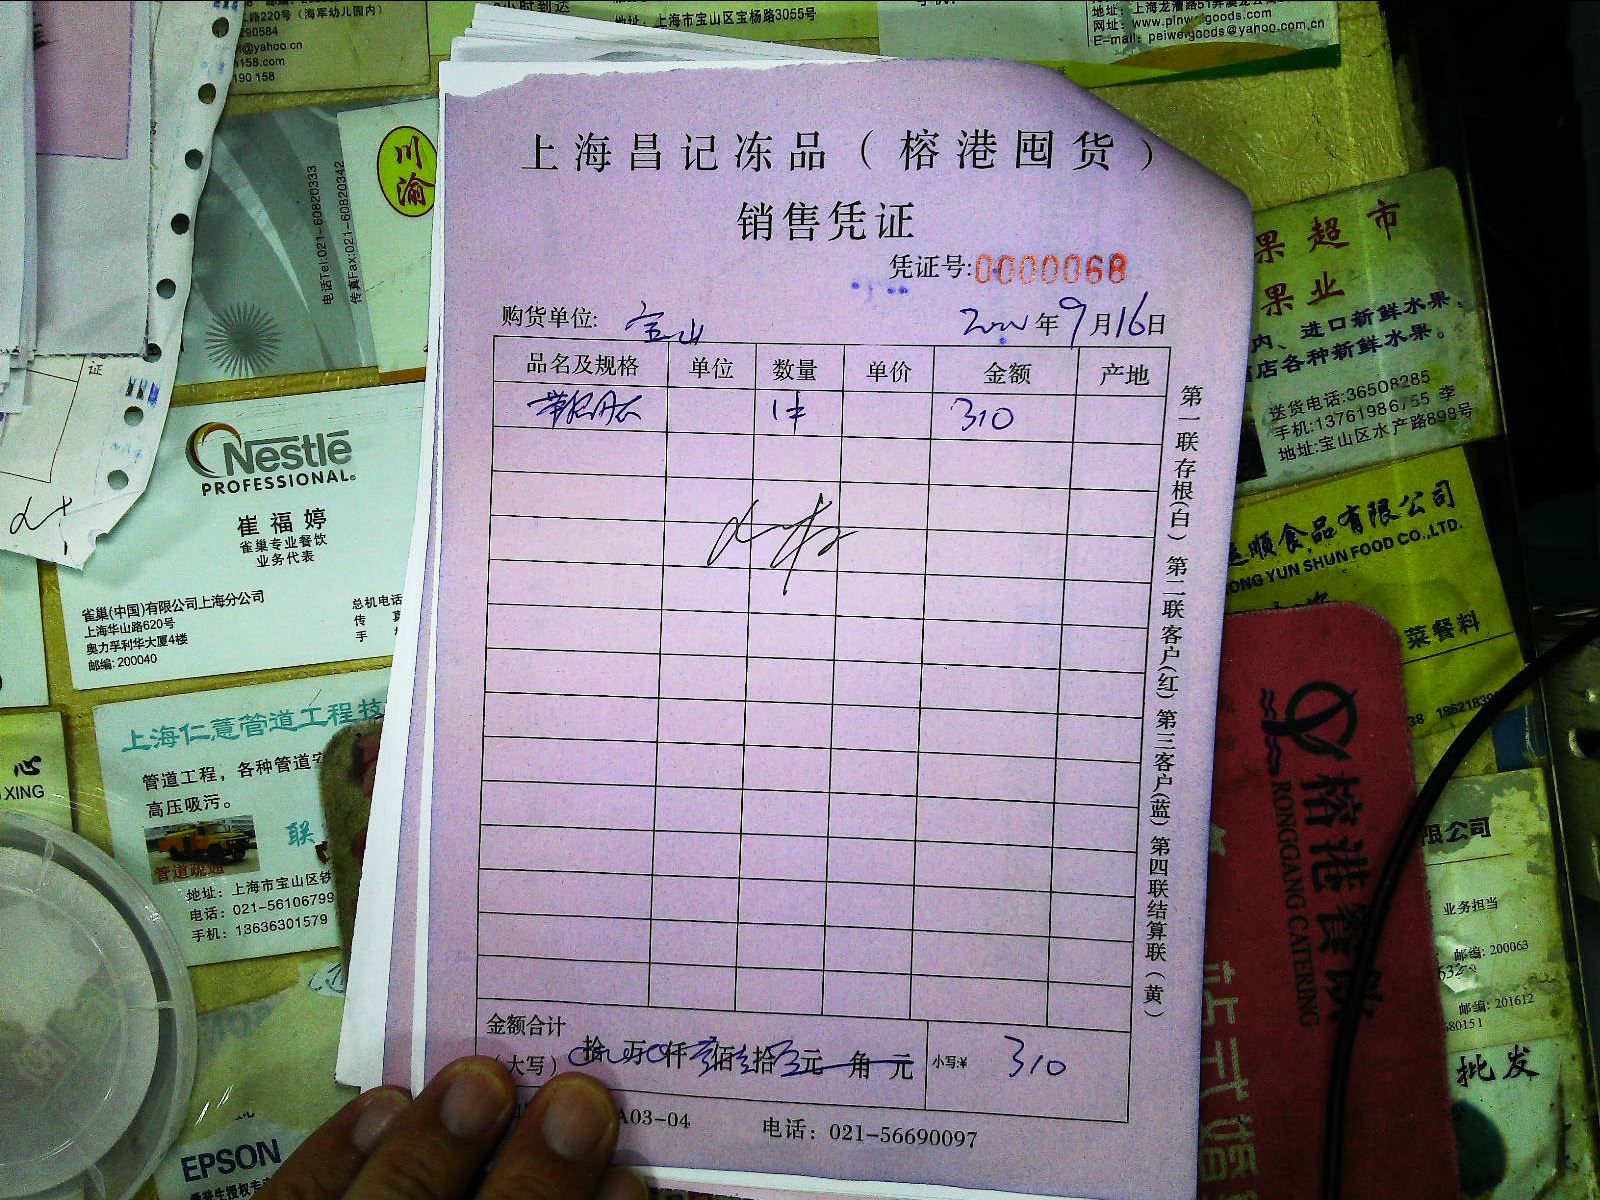 二路220号（海军幼儿园内）
290584
@yahoo.cn
158.com
190 158
小时到达
地址：上海市宝山区宝杨路3055号
地址：上海龙漕路51弄
网址：www.pinweigoods.com
E-mail：peiweigoods@yahoo.com.cn
川渝
电话Tel:021-60820333
传真Fax:021-60820342
证
Nestlé
PROFESSIONAL.
崔福婷
雀巢专业餐饮
业务代表
雀巢(中国)有限公司上海分公司
上海华山路620号
奥力孚利华大厦4楼
邮编: 200040
总机电话
传 真
手
上海仁薏管道工程技
管道工程，各种管道
高压吸污。
联
管道疏通
地址：上海市宝山区铁
电话：021-56106799
手机：13636301579
心
XING
EPSON
上海昌记冻品（榕港囤货）
销售凭证
凭证号:0000068
购货单位: 宝山 年9月16日
品名及规格 单位 数量 单价 金额 产地
1件 310
第一联存根(白) 第二联客户(红) 第三客户(蓝) 第四联结算联(黄)
金额合计
(大写) 拾 万 仟 佰 拾 元 角 元 小写:¥ 310
A03-04 电话：021-56690097
果超市
果业
内、进口新鲜水果，
店各种新鲜水果。
送货电话:36508285
手机:13761986755 李
地址:宝山区水产路898号
顺食品有限公司
ONG YUN SHUN FOOD CO.,LTD.
菜餐料
榕港餐饮
RONGGANG CATERING
限公司
业务担当
邮编: 200063
邮编: 201612
680151
批发